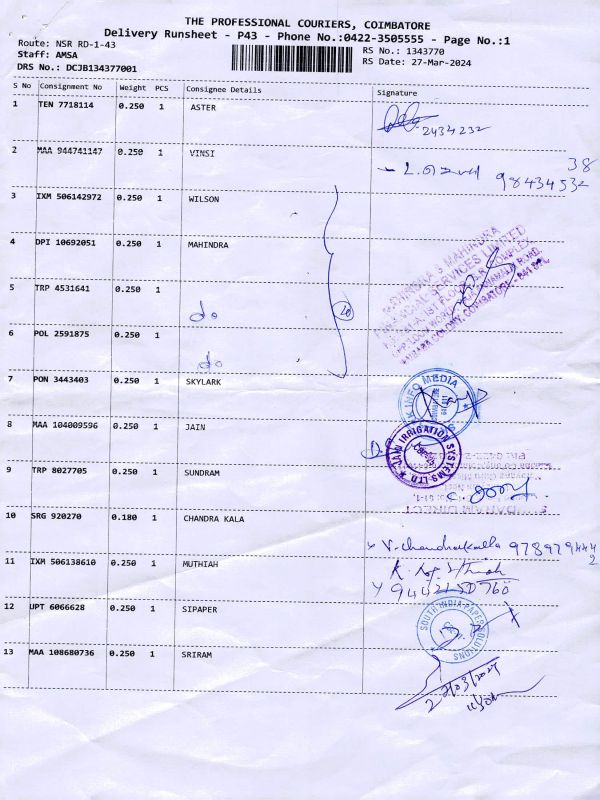 THE PROFESSIONAL COURIERS, COIMBATORE
Delivery Runsheet - P43 - Phone No.:0422-3505555 - Page No.:1
Route: NSR RD-1-43
Staff: AMSA
DRS No.: DCJB134377001
RS No.: 1343770
RS Date: 27-Mar-2024
S No Consignment No Weight PCS Consignee Details Signature
1 TEN 7718114 0.250 1 ASTER
2434232
2 MAA 944741147 0.250 1 VINSI
38
98434532
3 IXM 506142972 0.250 1 WILSON
4 DPI 10692051 0.250 1 MAHINDRA
5 TRP 4531641 0.250 1
do
6 POL 2591875 0.250 1
do
7 PON 3443403 0.250 1 SKYLARK
INFO MEDIA
8 MAA 104009596 0.250 1 JAIN
JAIN IRRIGATION SYSTEMS LTD
9 TRP 8027705 0.250 1 SUNDRAM
10 SRG 920270 0.180 1 CHANDRA KALA
V. Chandrakala 978979444
2
11 IXM 506138610 0.250 1 MUTHIAH
12 UPT 6066628 0.250 1 SIPAPER
SOUTH INDIA PAPER SOLUTIONS
13 MAA 108680736 0.250 1 SRIRAM